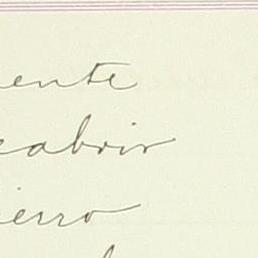 ente
eabrir
ierro